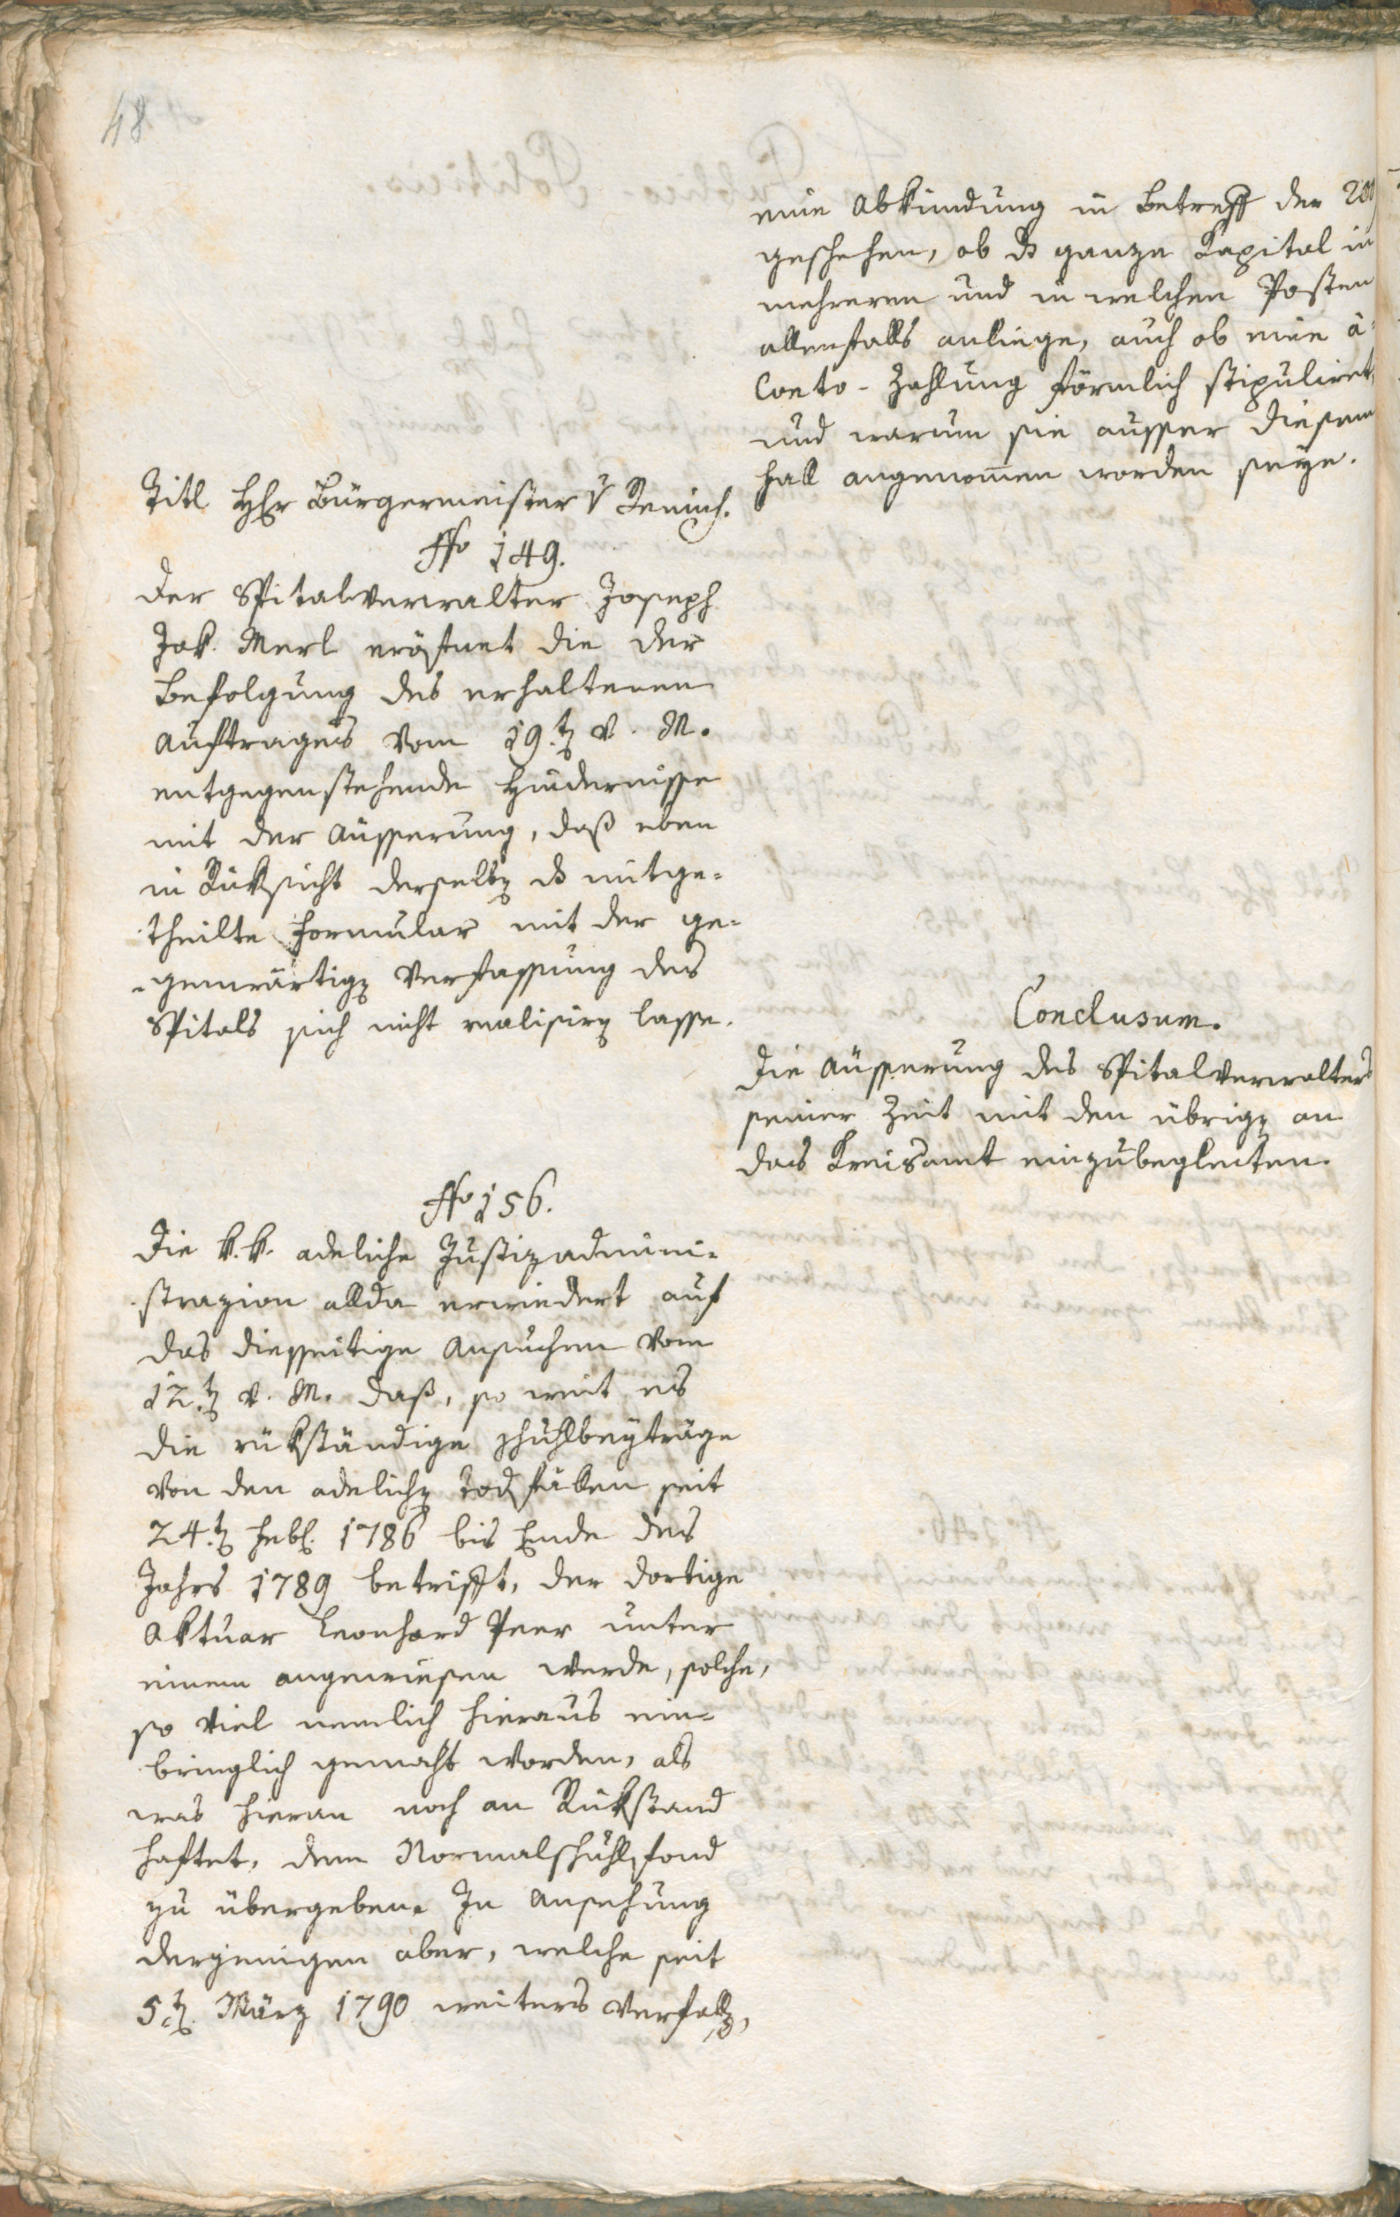 48
eine Abkündung in Betreff der 200
geschehen, ob ds ganze Kapital in
mehreren und in welchen Posten
allenfalls anliege, auch ob eine à
Conto-Zahlung förmlich stipuliret,
und warum sie ausser diesem
Fall angenom̅en worden seye.
Titl Hr Bürgermeister v Remich.
No 149.
Der Spitalverwalter Joseph
Jak. Merl eröfnet die der
Befolgung des erhaltenen
Auftrages vom 19.t v. M.
entgegenstehende Hindernisse
mit der Äusserung, daß eben
in Rüksicht derselben ds mitge-
theilte Formular mit der ge-
genwärtigen Verfassung des
Spitals sich nicht realisiren lasse.
Conclusum.
Die Äusserung des Spitalverwalters
seiner Zeit mit den übrigen an
das Kreisamt einzubegleiten.
No 156.
Die k.k. adeliche Justizadmini-
strazion allda erwiedert auf
das diesseitige Ansuchen vom
12.t v. M. daß, so weit es
die rükständige Schulbeyträge
von den adelichen Todfällen seit
24.t Febr. 1786 bis Ende des
Jahrs 1789 betrifft, der dortige
Aktuar Leonhard Peer unter
einem angewiesen werde, solche,
so viel nemlich hieraus ein-
bringlich gemacht worden, als
was hieran noch an Rükstand
haftet, dem Normalschulfond
zu übergeben. In Ansehung
derjenigen aber, welche seit
5.t März 1790 weiters verfallen,